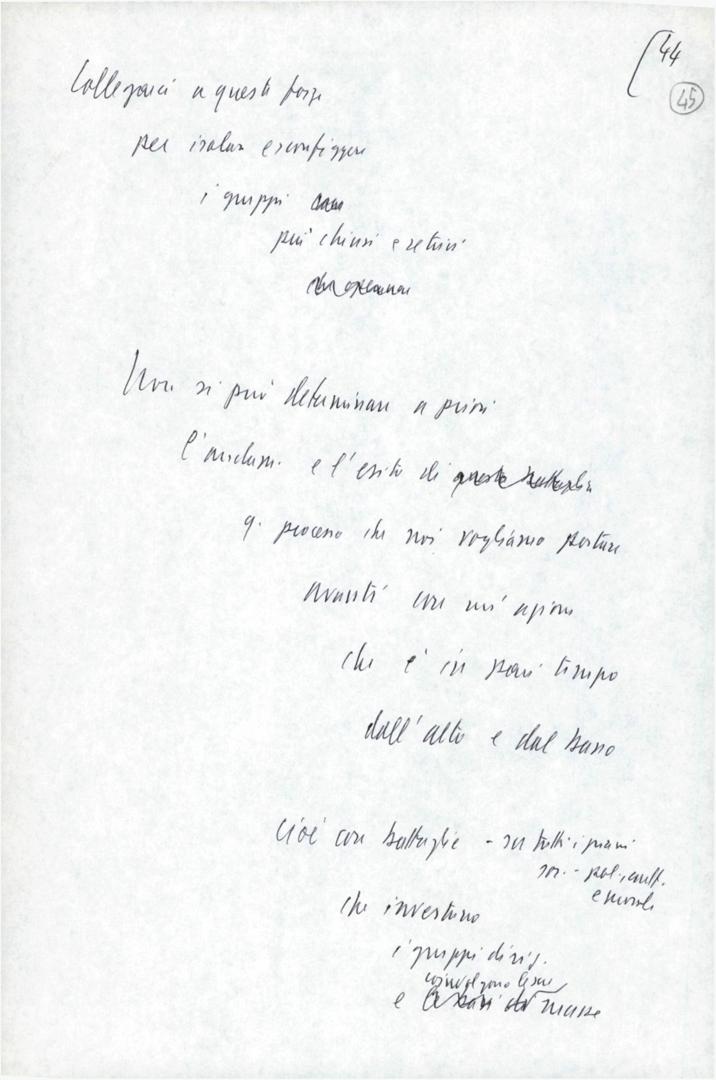 [44
45
Collegarci a queste forze
per isolare e sconfiggere
i gruppi
più chiusi e retrivi
Non si può determinare a priori
l'andam. e l'esito di questa battaglia
q. processo che noi vogliamo portare
avanti con un'azione
che è in pari tempo
dall'alto e dal basso
Cioè con battaglie - su tutti i piani
soc. - pol., cult.
e morale
che investano
i gruppi dirig.
coinvolgono le
e masse